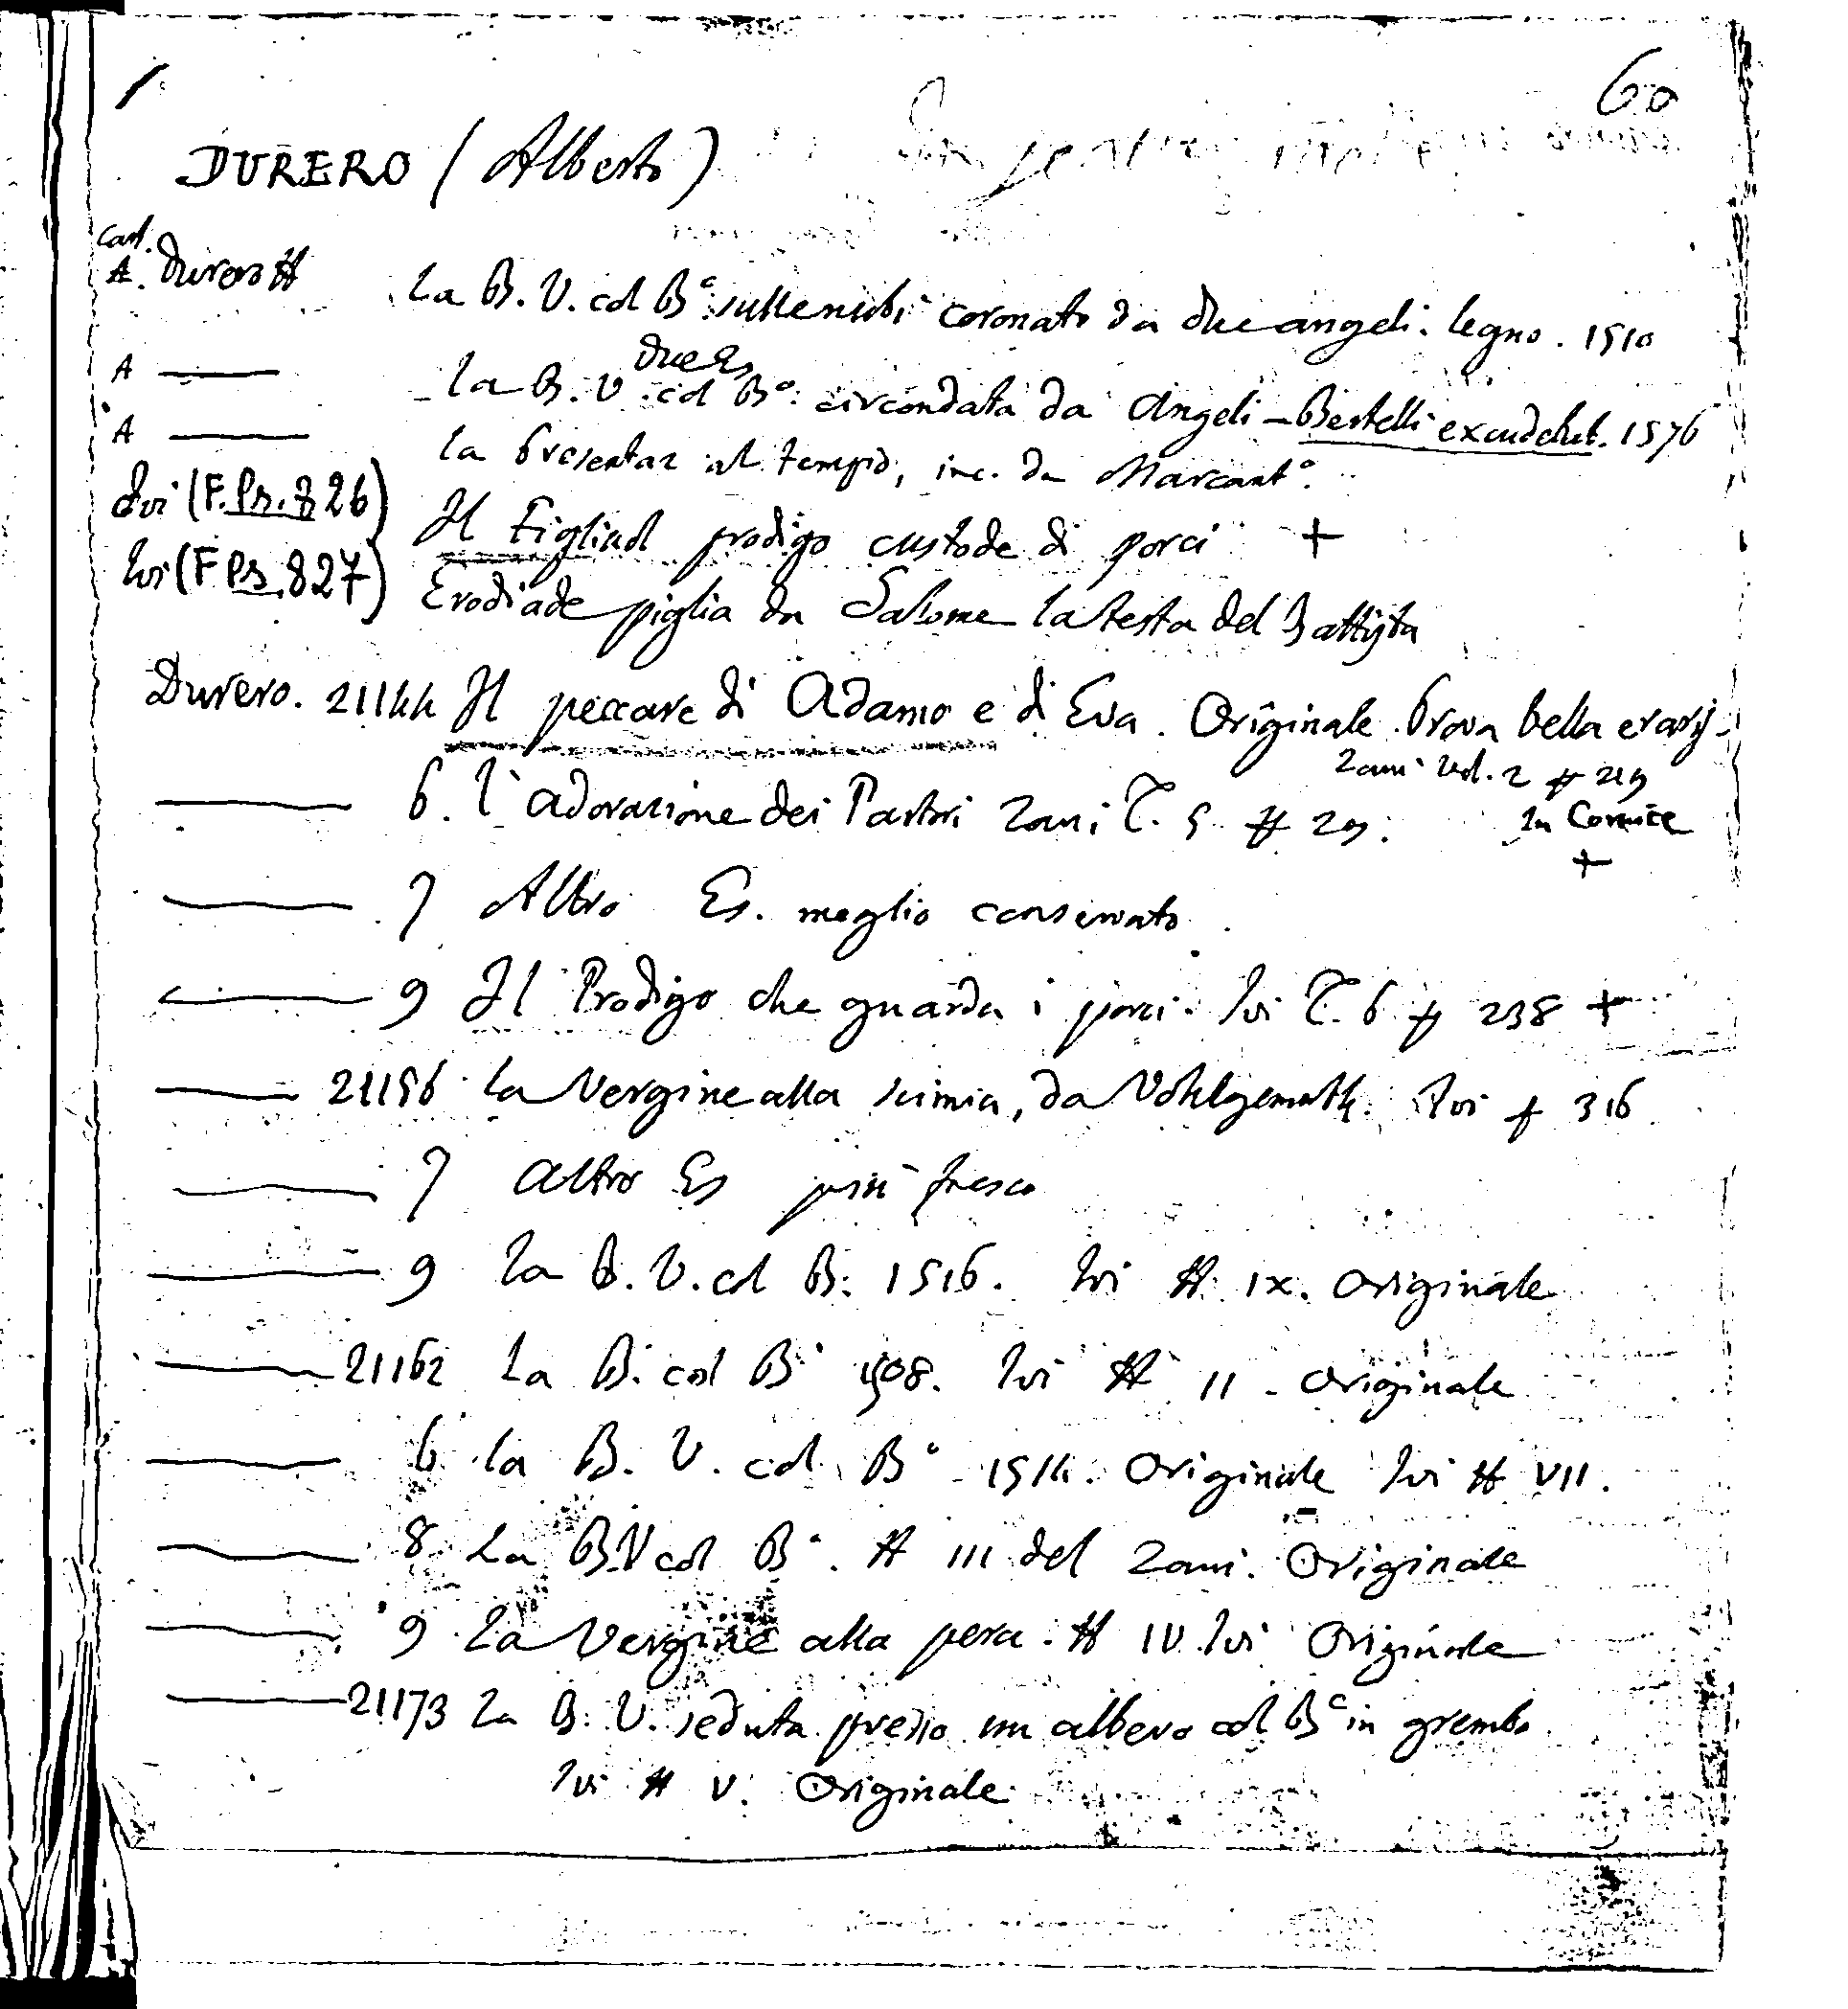 60
DURERO (Alberto)
Cart.
A. Durero # La B. V. col B.° sulle nubi coronato da due angeli. legno. 1510
due Es
A —— La B. V. col B.° circondata da Angeli – Bertelli excudebat. 1576
A —— La Presentaz al tempio, inc. da Marcant.°
Ivi (F. Ps. 826) Il Figliuol prodigo custode di porci +
Ivi (F Ps. 827) Erodiade piglia da Salome la testa del Battista
Durero. 21144 Il peccare di Adamo e di Eva. Originale. Prova bella e rariss.
Zani Vol. 2 # 219
—— 6. L'adorazione dei Pastori Zani T. 5 # 29. In Cornice
+
—— 7 Altro Es. meglio conservato
—— 9 Il Prodigo che guarda i porci. Ivi T. 6 # 238 +
—— 21156 La Vergine alla scimia, da Vohlgemuth. Ivi # 316
—— 7 Altro Es più fresco
—— 9 La B. V. col B. 1516. Ivi # IX. Originale
—— 21162 La B. col B° 1508. Ivi # II – Originale
—— 6 La B. V. col B° 1514. Originale Ivi # VII.
—— 8 La B.V col B°. # III del Zani. Originale
—— 9 La Vergine alla pera. # IV. Ivi Originale
—— 21173 La B. V. seduta presso un albero col B° in grembo
Ivi # V. Originale